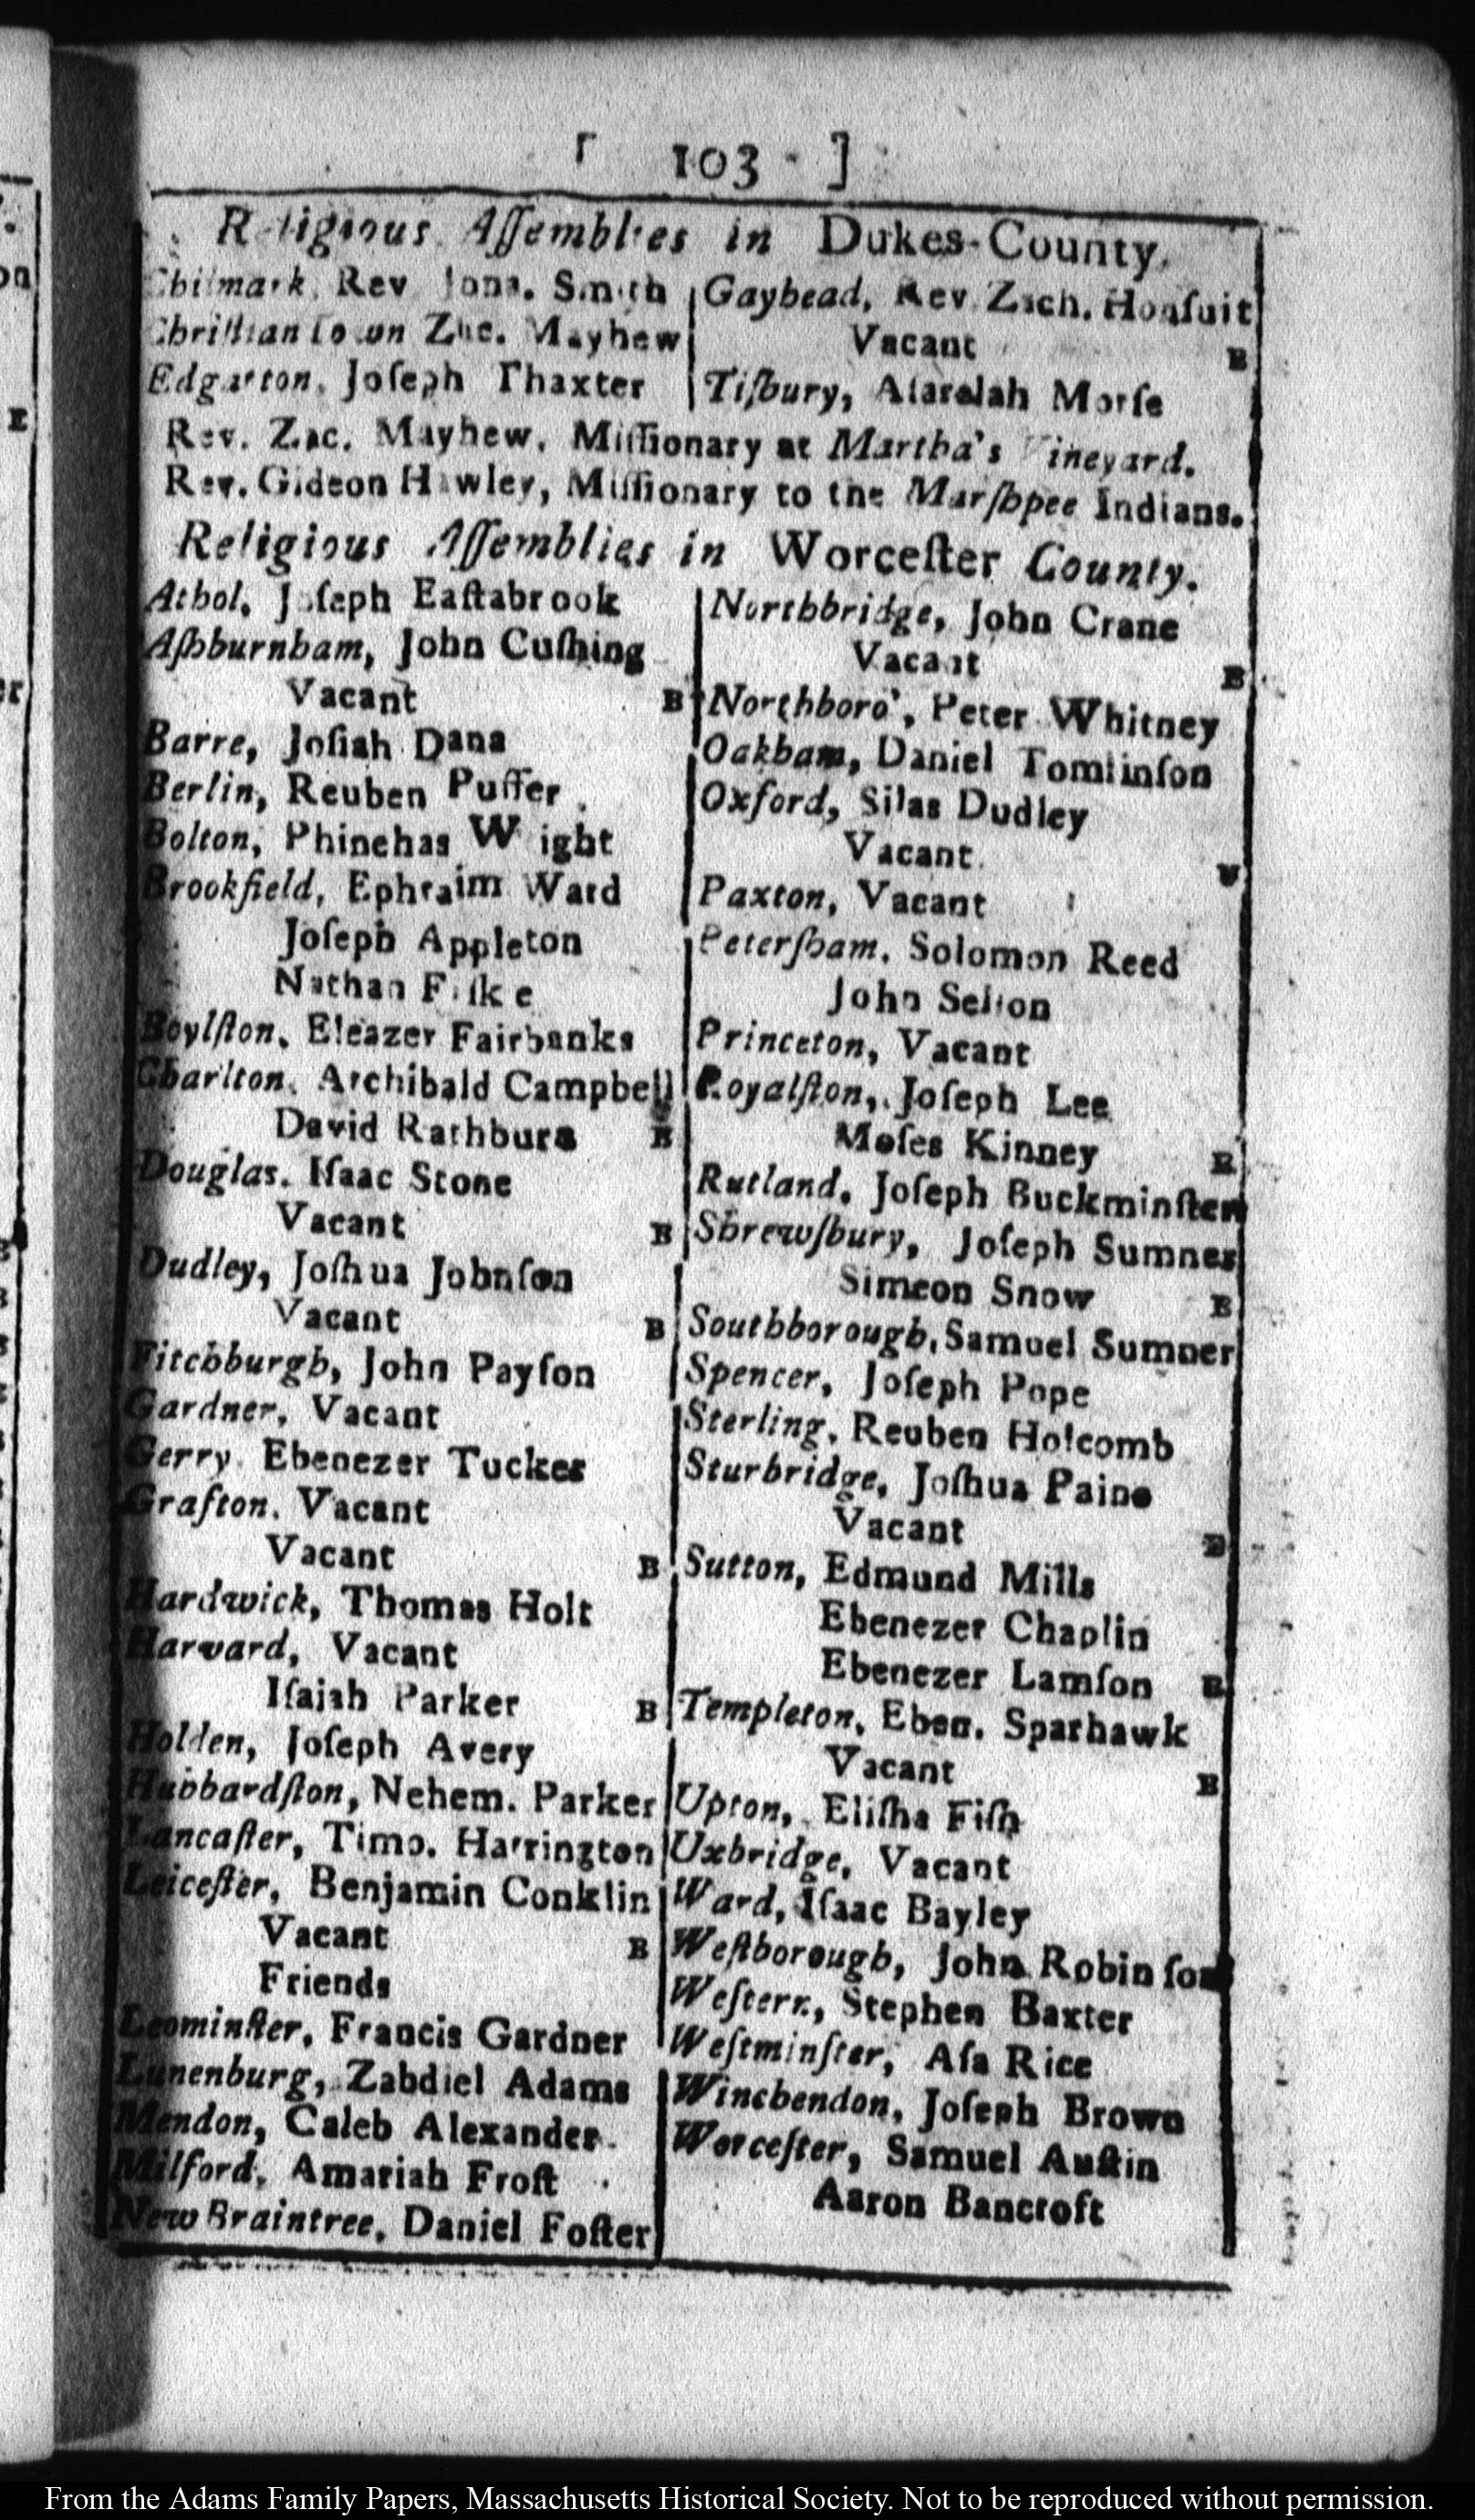 [ 103 ]
Religious Aſſemblies in Dukes-County.
Chilmark, Rev Jona. Smith
Chriſtian Town Zac. Mayhew
Edgarton, Joſeph Thaxter
Gayhead, Rev Zach. Honſuit
Vacant B
Tiſbury, Aſarelah Morſe
Rev. Zac. Mayhew, Miſſionary at Martha's Vineyard.
Rev. Gideon Hawley, Miſſionary to the Marſhpee Indians.
Religious Aſſemblies in Worceſter County.
Athol, Joſeph Eaſtabrook
Aſhburnham, John Cuſhing
Vacant B
Barre, Joſiah Dana
Berlin, Reuben Puffer
Bolton, Phinehas W ight
Brookfield, Ephraim Ward
Joſeph Appleton
Nathan Fiſke
Boylſton, Eleazer Fairbanks
Charlton, Archibald Campbell
David Rathburn B
Douglas, Iſaac Stone
Vacant B
Dudley, Joſhua Johnſon
Vacant B
Fitchburgh, John Payſon
Gardner, Vacant
Gerry, Ebenezer Tucker
Grafton, Vacant
Vacant B
Hardwick, Thomas Holt
Harvard, Vacant
Iſaiah Parker B
Holden, Joſeph Avery
Hubbardſton, Nehem. Parker
Lancaſter, Timo. Harrington
Leiceſter, Benjamin Conklin
Vacant B
Friends
Leominſter, Francis Gardner
Lunenburg, Zabdiel Adams
Mendon, Caleb Alexander.
Milford, Amariah Froſt
New Braintree, Daniel Foſter
Northbridge, John Crane
Vacant B
Northboro', Peter Whitney
Oakham, Daniel Tomlinſon
Oxford, Silas Dudley
Vacant U
Paxton, Vacant
Peterſham, Solomon Reed
John
Princeton, Vacant
Royalſton, Joſeph Lee
Moſes Kinney B
Rutland, Joſeph Buckminſter
Shrewſbury, Joſeph Sumner
Simeon Snow B
Southborough, Samuel Sumner
Spencer, Joſeph Pope
Sterling, Reuben Holcomb
Sturbridge, Joſhua Paine
Vacant B
Sutton, Edmund Mills
Ebenezer Chaplin
Ebenezer Lamſon B
Templeton, Eben. Sparhawk
Vacant B
Upton, Eliſha Fiſh
Uxbridge, Vacant
Ward, Iſaac Bayley
Weſtborough, John Robinſon
Weſtern, Stephen Baxter
Weſtminſter, Aſa Rice
Winchendon, Joſeph Brown
Worceſter, Samuel Auſtin
Aaron Bancroft
From the Adams Family Papers, Massachusetts Historical Society. Not to be reproduced without permission.